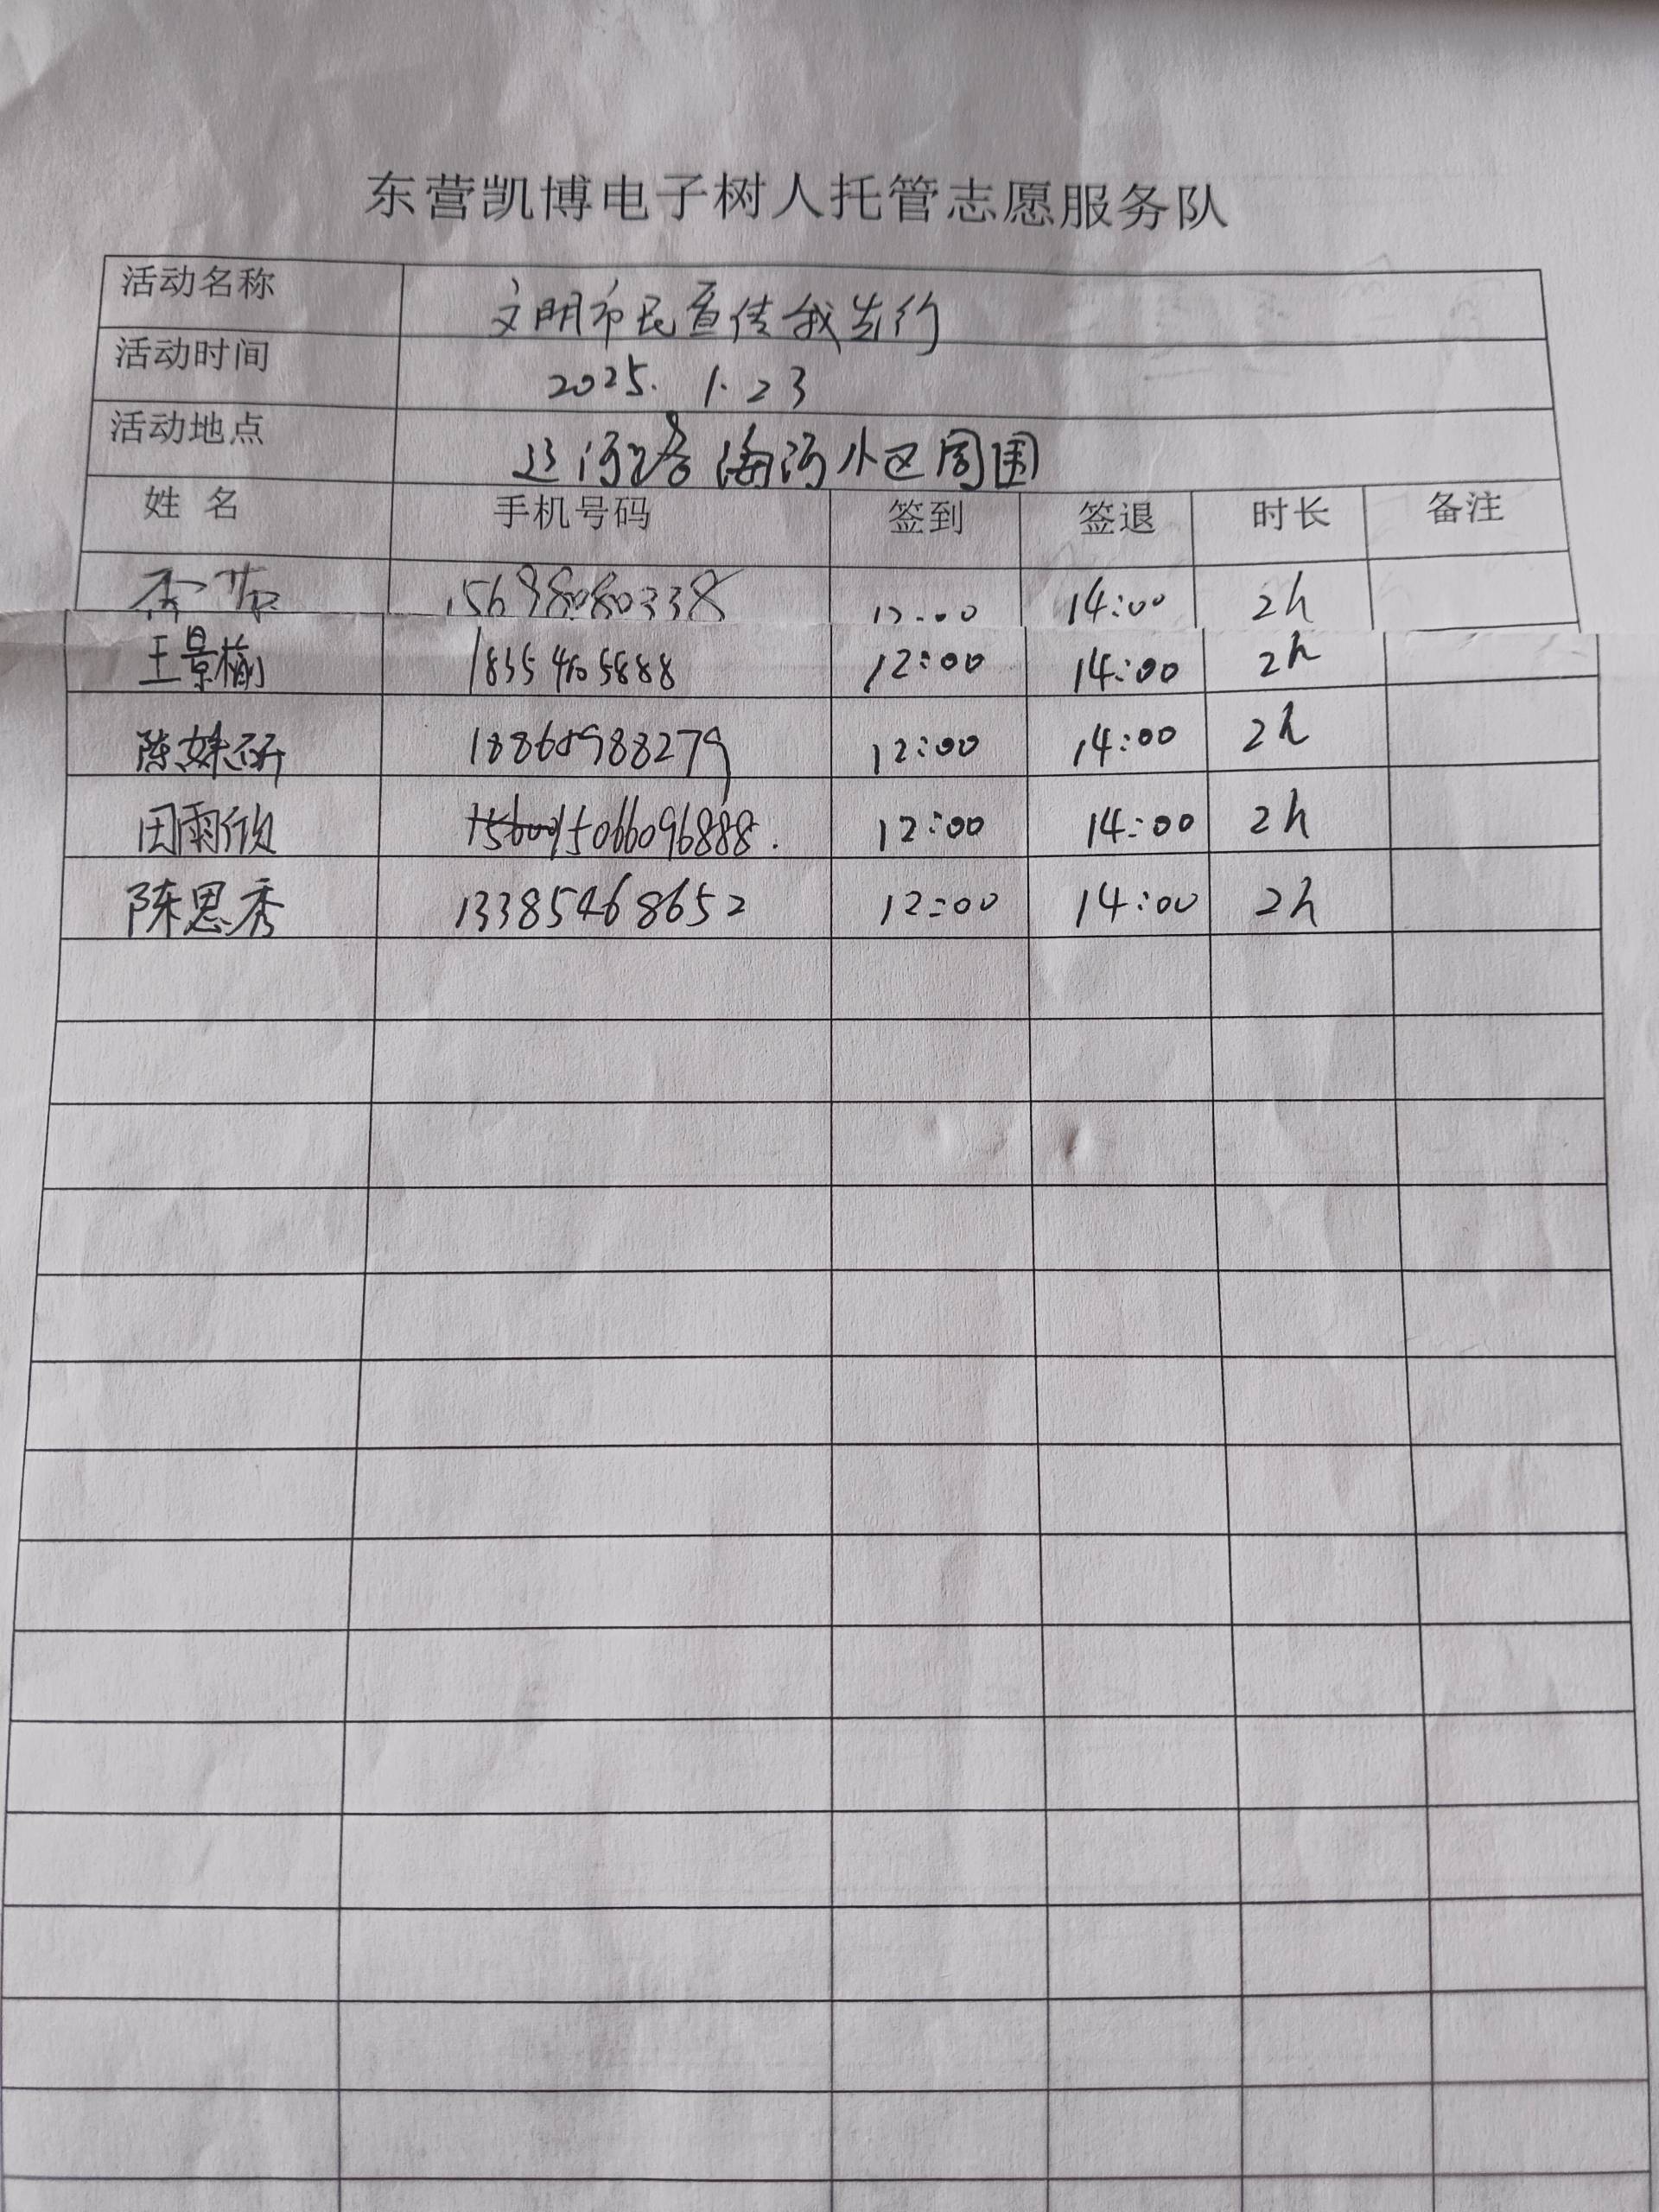 东营凯博电子树人托管志愿服务队
活动名称 文明市民宣传我先行
活动时间 2025.1.23
活动地点 辽河路海河小区周围
姓 名 手机号码 签到 签退 时长 备注
15698080338 12:00 14:00 2h
王景楠 12:00 14:00 2h
陈姝研 18868988279 12:00 14:00 2h
田雨欣 15066096888. 12:00 14:00 2h
陈思秀 13385468652 12:00 14:00 2h